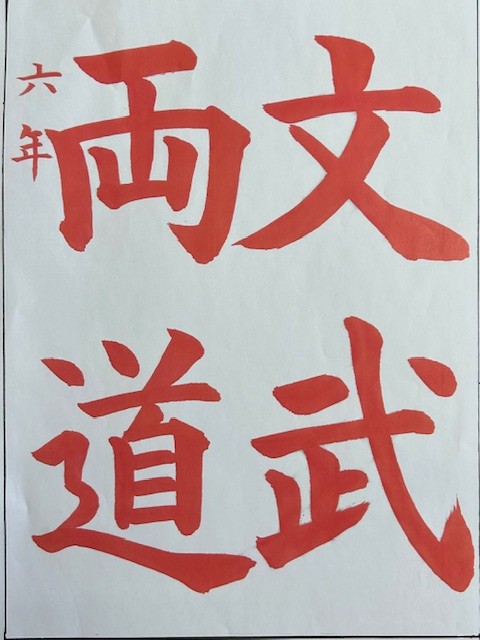 文武
両道
六年